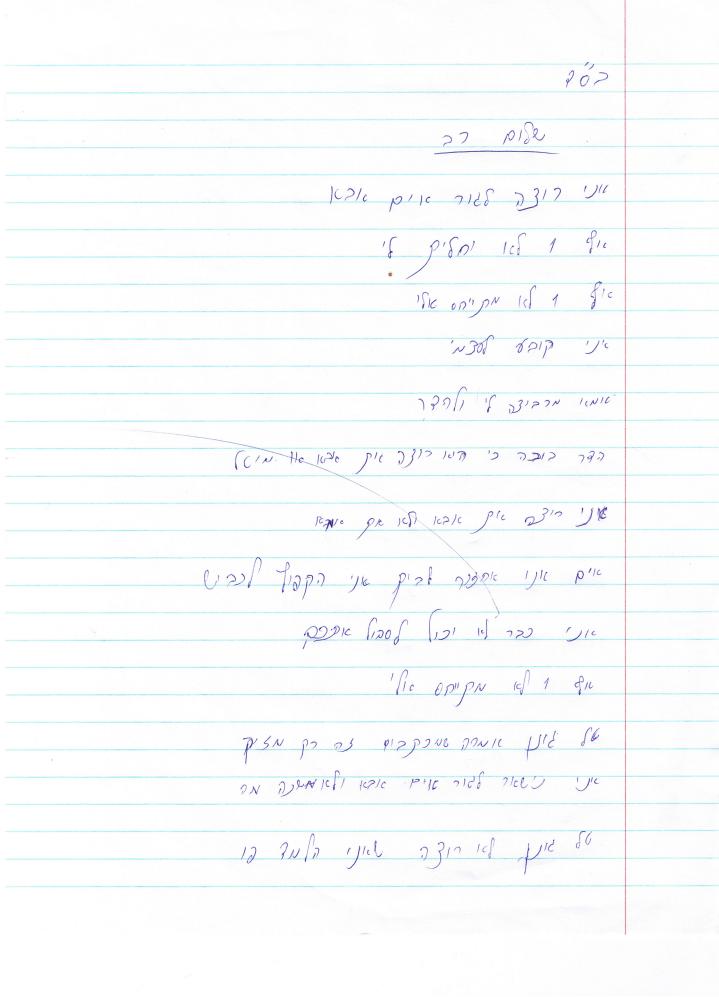 בס"ד
שלום רב
אני רוצה לגור אים אבא
אף 1 לא יחליט לי
איף 1 לא מתייחס אלי
אני קובע לעצמי
אמא מרביצה לי ולהדר
הדר בוכה כי היא רוצה את אבא מיטל
אני רוצה את אבא ולא את אמא
אים אני אחזה לביק אני הקפוץ לכביש
אני כבר לא יכול לסבול אתכם
אף 1 לא מתייחס אלי
טל גונן אמרה שמכתבים זה רק מזיק
אני נישאר לגור אים אבא ולא מה
טל גונן לא רוצה שאני הלמד פו